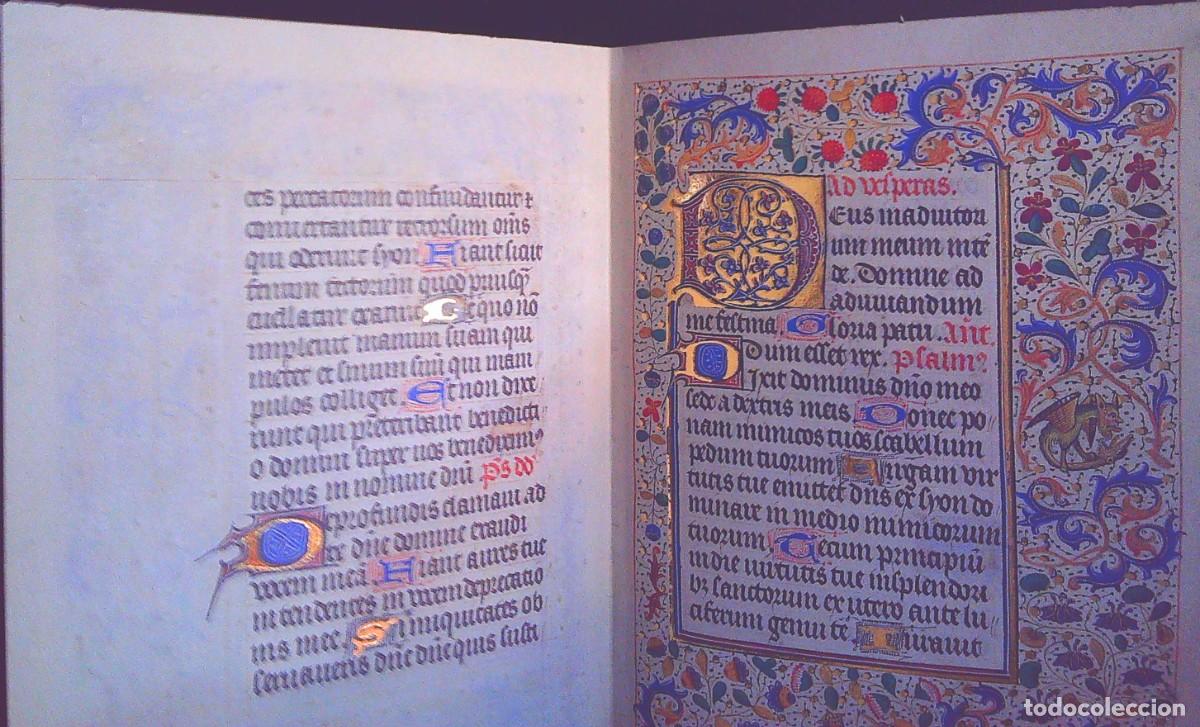 ces peccatorum confundantur ⁊
conuertantur retrorsum om̄s
qui oderunt syon Fiant sicut
fenum tectorum quod priusq̄
euellatur exaruit De quo nō
impleuit manum suam qui
metet et sinum suū qui mani
pulos colliget Et non dixe
runt qui preteribant benedicti
o domini super uos benedixim⁹
uobis in nomine dn̄i p̄s dd
De profundis clamaui ad
te dn̄e domine exaudi
uocem meā Fiant aures tue
intendentes in uocem deprecatio
nis mee Si iniquitates ob
seruaueris dn̄e dn̄e quis susti
Ad vesperas.
Deus in adiutori
um meum intē
de. Domine ad
adiuuandum
me festina. Gloria patri. Ant
Dum esset rex. Psalm⁹
Dixit dominus dn̄o meo
sede a dextris meis Donec po
nam inimicos tuos scabellum
pedum tuorum Uirgam vir
tutis tue emittet dn̄s ex syon do
minare in medio inimicorum
tuorum Tecum principiū
in die virtutis tue in splendori
bʒ sanctorum ex utero ante lu
ciferum genui te Iurauit
todocoleccion